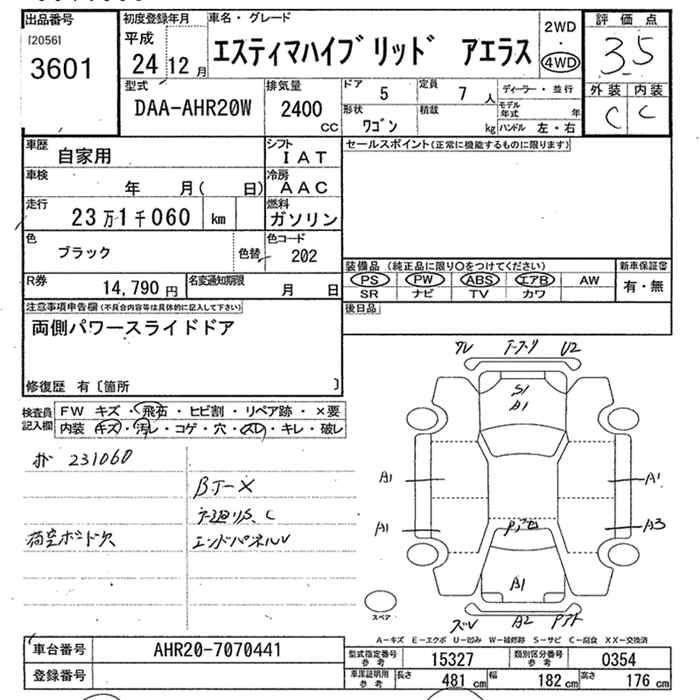 出品番号
[2056]
3601
初度登録年月
平成
24 12 月
車名・グレード
エスティマハイブリッド アエラス
2WD
・
4WD
評価点
3.5
外装 内装
C C
型式
DAA-AHR20W
排気量
2400
cc
ドア 5
定員 7 人
形状
ワゴン
積載
kg
ディーラー・並行
モデル年式 年
ハンドル 左・右
車歴
自家用
シフト
IAT
車検
年 月( 日)
冷房
AAC
走行
23万1千060 km
燃料
ガソリン
色
ブラック
色替
色コード
202
R券
14,790 円
名変通知期限
月 日
セールスポイント(正常に機能するものに限ります)
装備品(純正品に限り○をつけてください)
PS PW ABS エアB AW
SR ナビ TV カワ
新車保証書
有・無
後日品
注意事項申告欄(不具合内容等は具体的に記入して下さい)
両側パワースライドドア
修復歴 有〔箇所 〕
検査員記入欄
FW キズ・飛石・ヒビ割・リペア跡・×要
内装 キズ・汚レ・コゲ・穴・スレ・キレ・破レ
231060
荷室ボード欠
エンドパネルV
U2
S1
A1
A1
A1
A1
A3
A1
A2
スペア
A－キズ E－エクボ U－凹み W－補修跡 S－サビ C－腐食 XX－交換済
車台番号
AHR20-7070441
登録番号
型式指定番号 参考
15327
類別区分番号 参考
0354
車庫証明用 参考
長さ 481 cm
幅 182 cm
高さ 176 cm